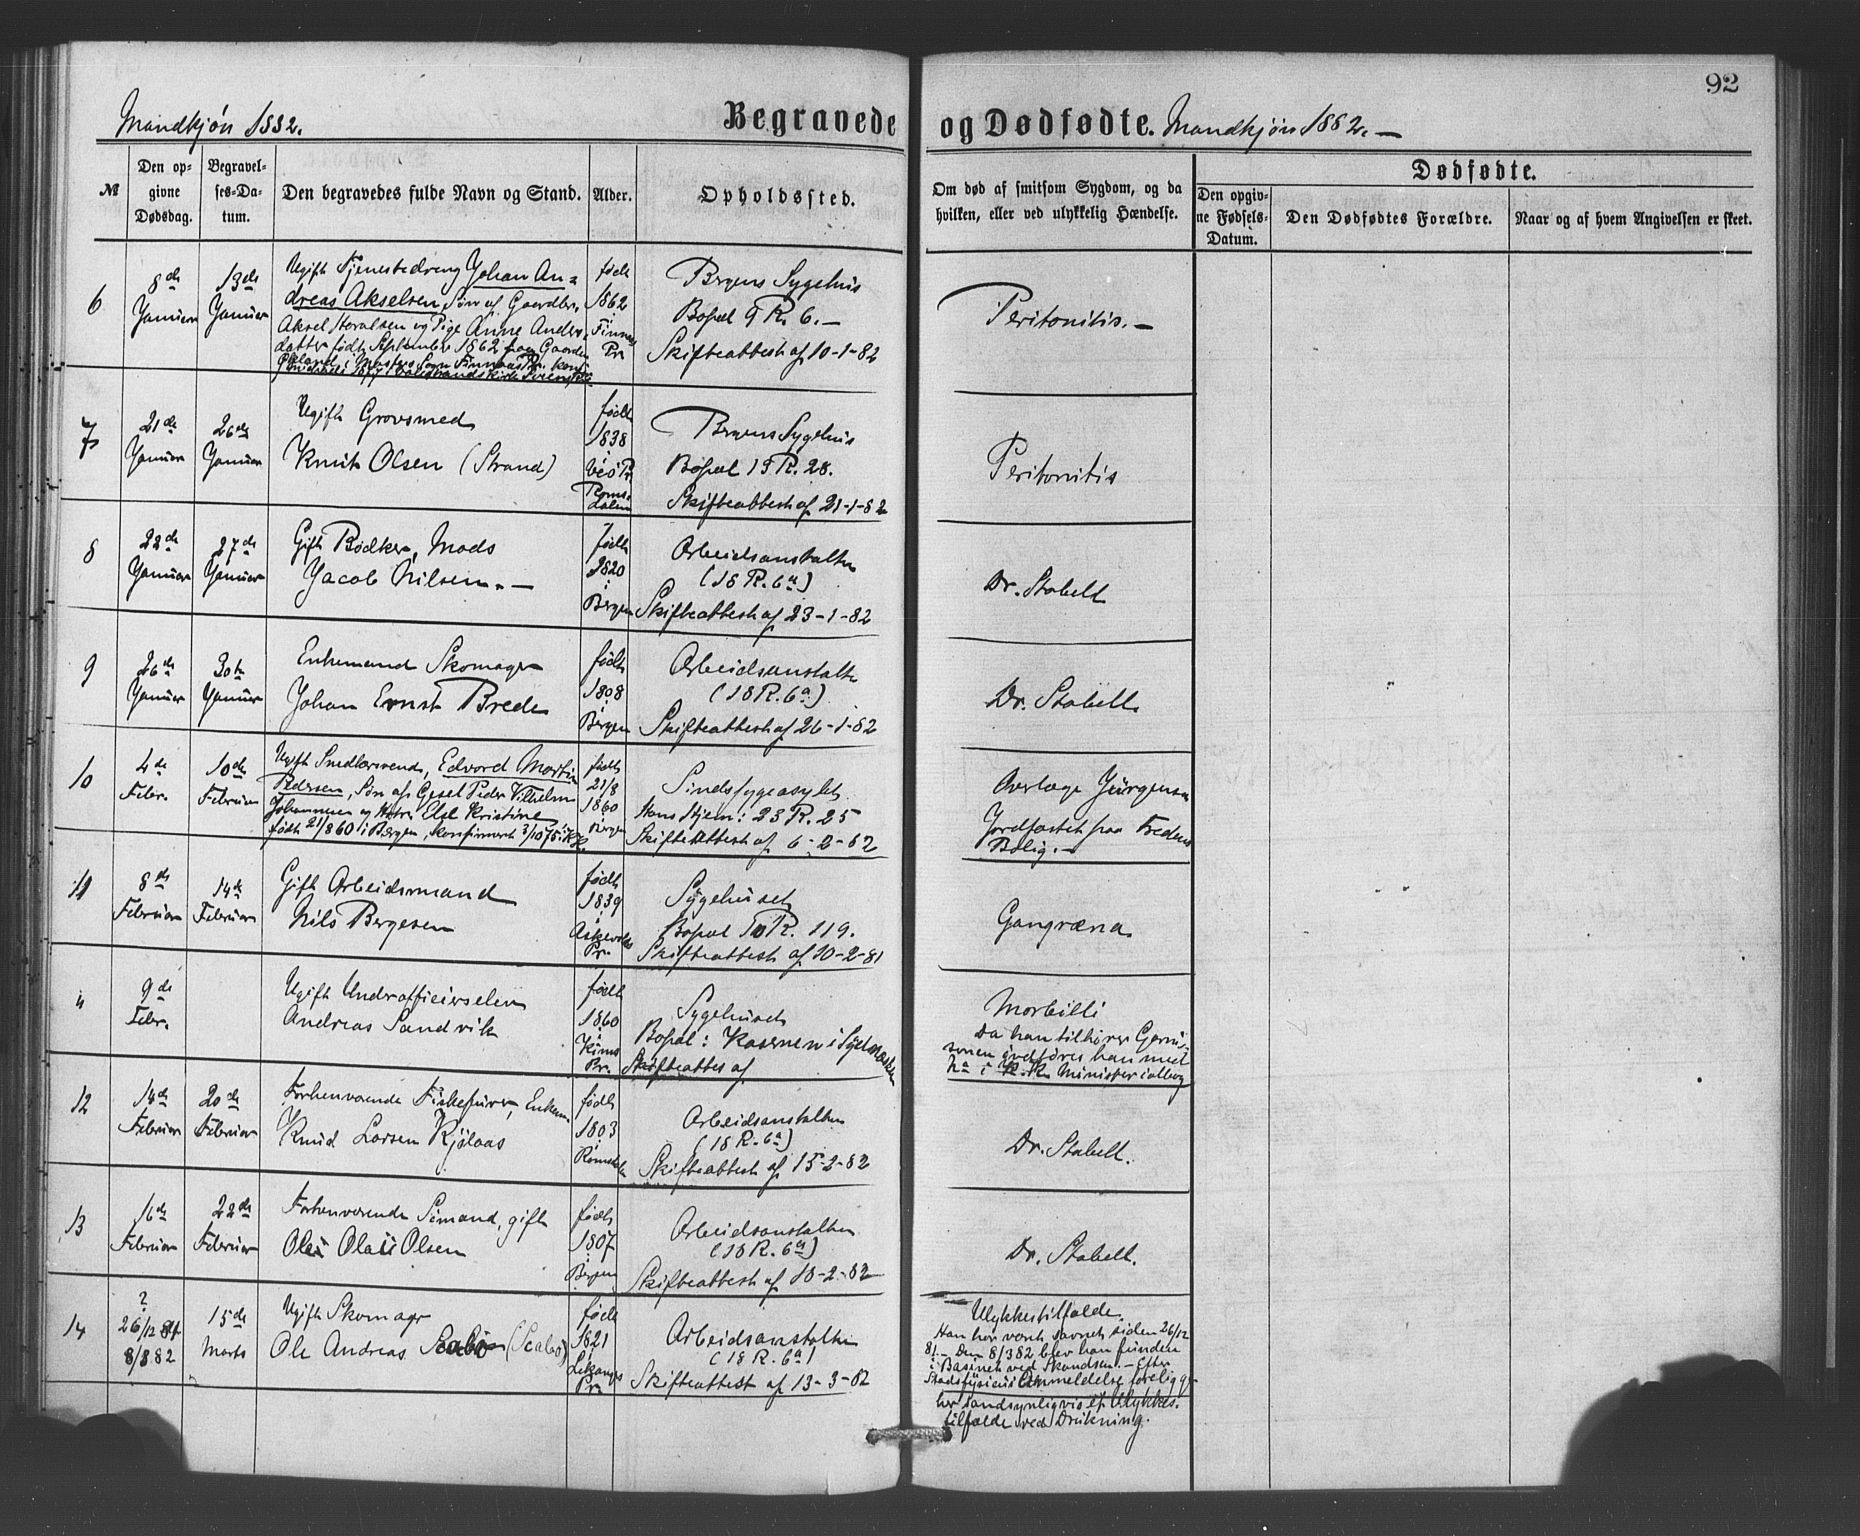 92
Mandkjøn 1882.
Begravede og Dødfødte. Mandkjøn 1882. —
№
Den opgivne Dødsdag.
Begravelses-Datum.
Den begravedes fulde Navn og Stand.
Alder.
Opholdssted.
Om død af smitsom Sygdom, og da
hvilken, eller ved ulykkelig Hændelse.
Dødfødte.
Den opgivne Fødsels-Datum.
Den Dødfødtes Forældre.
Naar og af hvem Angivelsen er skeet.
6
8de
Januar
13de
Januar
Ugift Tjenestedreng Johan An=
dreas Akselsen, Søn af Gaardbr.
Aksel Storalsen og Pige Anne Anders
datter født September 1862 paa Gaarden
født
1862
i
Finnaas
Pr.
Bergens Sygehus
Bopæl 9 R. 6. —
Skifteattest af 10-1-82
Peritonitis. —
7
21de
Januar
26de
Januar
Ugift Grovsmed
Knut Olsen (Strand)
født
1838
i
Veø Pr.
Romsdalen
Bergens Sygehus
Bopæl 15 R. 28.
Skifteattest af 21-1-82
Peritonitis
8
22de
Januar
27de
Januar
Gift Bødker, Mads
Jacob Nilsen. —
født
1820
i
Bergen
Arbeidsanstalten
(18 R. 6a)
Skifteattest af 23-1-82
Dr. Stabell
9
26de
Januar
30te
Januar
Enkemand Skomager
Johan Ernst Brede
født
1808
i
Bergen
Arbeidsanstalten
(18 R. 6a)
Skifteattest af 26-1-82
Dr. Stabell.
10
4de
Febr.
10de
Februar
Ugift Snedkersvend, Edvard Martin
Pedersen, Søn af Gesel Peder Vilhelm
Johannesen og Hustru Else Kristine
født 21/8 60 i Bergen, konfirmeret 3/10 75 i K.K.
født
21/8
1860
i
Bergen
Sindssygeasylet
Hans Hjem: 23 R. 25
Skifteattest af 6-2-82
Overlæge Jürgensen
Jordfæstet paa Fredens
Bolig. —
11
8de
Februar
14de
Februar
Gift Arbeidsmand
Nils Bergesen
født
1839
i
Askevolds
Pr.
Sygehuset
Bopæl 10 R. 119.
Skifteattest af 10-2-81
Gangræna
9de
Febr.
Ugift Underofficierselev
Andreas Sandvik
født
1860
i
Kinns
Pr.
Sygehuset
Bopæl: Kasernen i
Skifteattest af
Morbilli
Da han tilhører Garni-
sonen indføres han med
No i K.K. Ministerialbog
12
14de
Februar
20de
Februar
Forhenværende Fiskefører, Enkem.
Knud Larsen Kjølaas
født
1803
i
Romsdalen
Arbeidsanstalten
(18 R. 6a)
Skifteattest af 15-2-82
Dr. Stabell.
13
16de
Februar
22de
Februar
Forhenværende Sømand, gift
Ole Olaii Olsen
født
1807
i
Bergen
Arbeidsanstalten
(18 R. 6a)
Skifteattest af 18-2-82
Dr. Stabell.
14
?
26/12 81
8/3 82
15de
Marts
Ugift Skomager
Ole Andreas Scabø (Scabo)
født
1821
i
Leikanger
Pr.
Arbeidsanstalten
(18 R. 6a)
Skifteattest af 13-3-82
Ulykkestilfælde.
Han har været savnet siden 26/12
81. — Den 8/3 82 blev han funden
i Basinet ved Skandsen. — Efter
Stadsfysicus Anmeldelse forelig-
ger sandsynligvis et Ulykkes-
tilfælde ved Drukning.